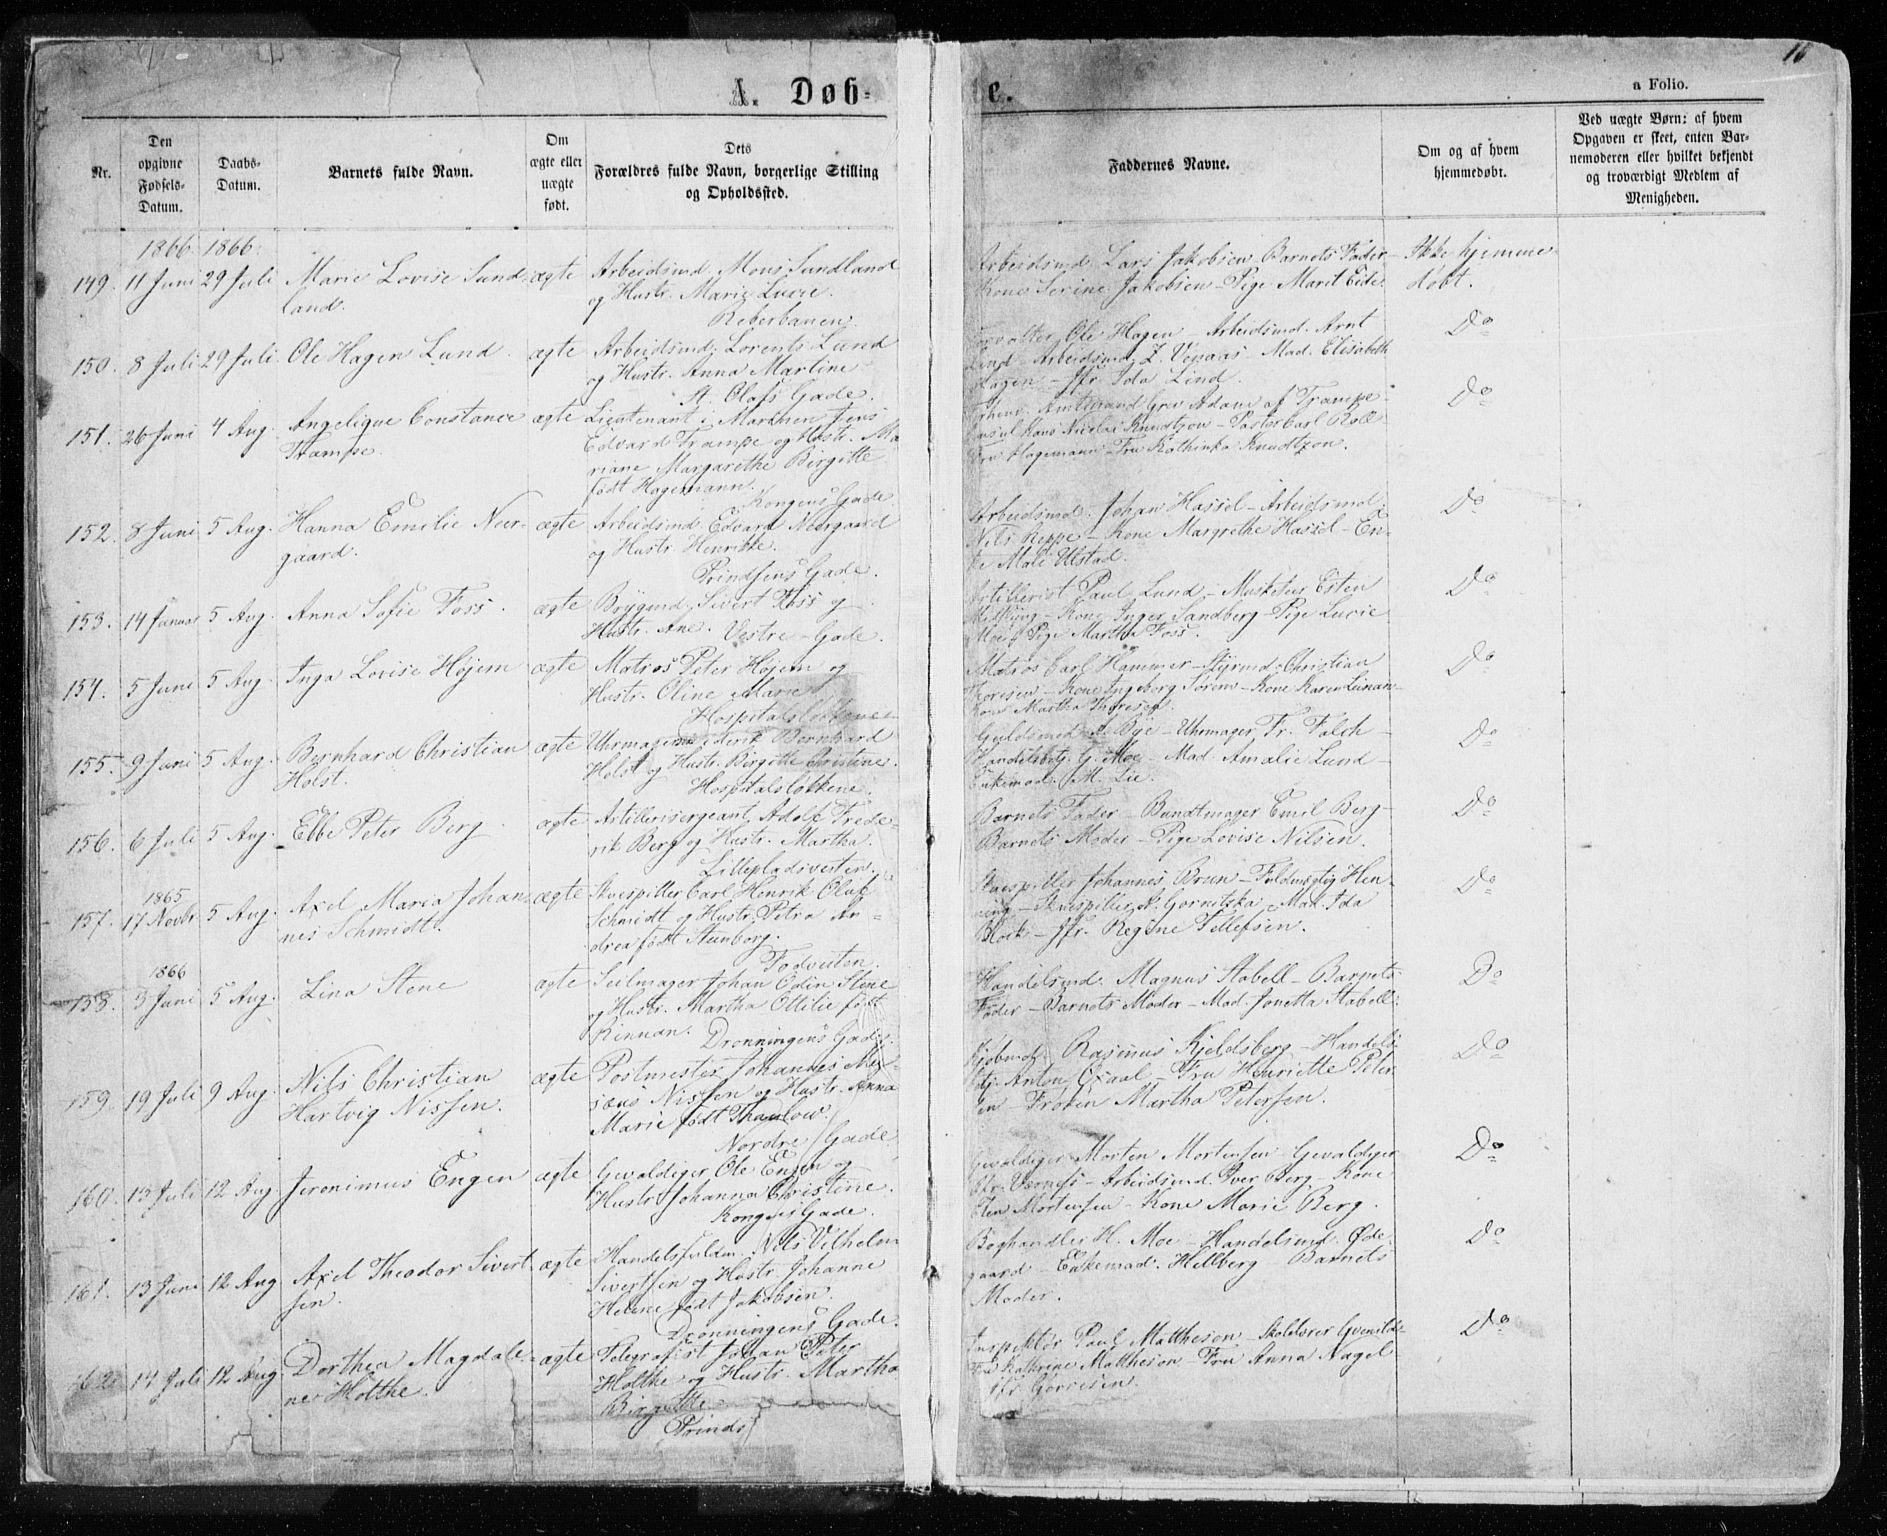 16
A. Døb-
e.
a Folio.
Nr.
Den opgivne Fødsels-Datum.
Daabs-Datum.
Barnets fulde Navn.
Om ægte eller uægte født.
Dets Forældres fulde Navn, borgerlige Stilling og Opholdssted.
Faddernes Navne.
Om og af hvem hjemmedøbt.
Ved uægte Børn: af hvem Opgaven er skeet, enten Barnemoderen eller hvilket bekjendt og troværdigt Medlem af Menigheden.
1866 1866
149. 11 Juni 29 Juli Marie Lovise Sund- ægte Arbeidsmd. Mons Sundland
land. og Hustr. Marie Lucie.
Reberbanen.
Arbeidsmd. Lars Jakobsen - Barnets Fader - Ikke hjemme
Kone Serine Jakobsen - Pige Marit Eide døbt.
150. 8 Juli 29 Juli Ole Hagen Lund. ægte Arbeidsmd. Lorents Lund
og Hustr. Anna Martine
St. Olafs Gade.
Ole Hagen - Arbeidsmd. Arnt Do
Lind - Arbeidsmd. Z. - Mad. Elisabeth
Hagen - Jfr. Ida Lind.
151. 26 Juni 4 Aug. Angelique Constance ægte Lieutenant i Marinen Jens
Trampe. Edvard Trampe og Hustr. Ma
riane Margarethe Birgitte
født Hagemann.
Kongens Gade
Amtmand Grev Adam af Trampe - Do
Konsul Hans Nicolai Knudtzon - Pastor Carl Roll
Fru Hagemann - Fru Kathinka Knudtzon.
152. 8 Juni 5 Aug. Hanna Emilie Neer- ægte Arbeidsmd. Edvard Neergaard
gaard. og Hustr. Henrikke.
Prindsens Gade.
Arbeidsmd. Johan Hassel - Arbeidsmd. Do
Nils Reppe - Kone Margrethe Hassel - En-
ke Mali Ulstad.
153. 14 Januar 5 Aug. Anna Sofie Foss. ægte Brygmd. Sivert Foss og
Hustr. Ane. Vestre - Gade.
Artillerist Paul Lund - Musketeer Esten Do
- Kone Inger Sandberg - Pige Lucie
Moe - Pige Martha Foss.
154. 5 Juni 5 Aug. Inga Lovise Højem ægte Matros Peter Højem og
Hustr. Oline Marie
Hospitalsløkkene
Matros Carl Hammer - Styrmd. Christian Do
Thoresen - Kone Ingeborg Sørem - Kone Karen Leinan -
Kone Martha Thoresen.
155. 9 Juni 5 Aug. Bernhard Christian ægte Uhrmager Diderik Bernhard
Holst. Holst og Hustr. Birgitte Christine.
Hospitalsløkkene.
Guldsmed A. Bye - Uhrmager Fr. Falch - Do
Handelsbetj. G. Moe - Mad. Amalie Lund -
Enkemad. M. Lie.
156. 6 Juli 5 Aug. Ebbe Peter Berg ægte Artillerisergeant Adolf Frede-
rik Berg og Hustr. Martha.
Lillepladsvesten.
Barnets Fader - Bundtmager Emil Berg - Do
Barnets Moder - Pige Lovise Nilsen.
1865
157. 17 Novbr 5 Aug. Axel Maria Johan- ægte Skuespiller Carl Henrik Oluf
nes Schmidt. Schmidt og Hustr. Petra An-
drea født Steenborg.
Fodveiten.
Skuespiller Johannes Brun - Fuldmægtig Hen- Do
ning - Skuespiller N. Gornitska - Mad. Ida
Block - Jfr. Regine Tellefsen.
1866
158. 3 Juni 5 Aug. Lina Stene ægte Seilmager Johan Odin Stene
og Hustr. Martha Ottilie født
Rinnan. Dronningens Gade.
Handelsmd. Magnus Stabell - Barnets Do
Fader - Barnets Moder - Mad. Jonetta Stabell.
159. 19 Juli 9 Aug. Nils Christian ægte Postmester Johannes
Hartvig Nissen. Nissen og Hustr. Anna
Marie født Thaulow.
Nordre Gade
Kjøbmd. Rasmus Kjeldsberg - Handels Do
btj. Anton Oxaal - Fru Henriette Peter
sen - Frøken Martha Petersen.
160. 13 Juli 12 Aug. Jeronimus Engen ægte Gevaldiger Ole Engen og
Hustr. Johanna Christine.
Kongens Gade.
Gevaldiger Morten Mortensen - Gevaldiger Do
Værnes - Arbeidsmd. Iver Berg - Kone
Mortensen - Kone Marie Berg.
161. 13 Juni 12 Aug Axel Theodor Sivert ægte Handelsfuldm. Nils Vilhelm
sen. Sivertsen og Hustr. Johanne
Helene født Jakobsen.
Dronningens Gade.
Boghandler H. Moe - Handelsmd. Øde- Do
gaard - Enkemad. Hellberg - Barnets
Moder.
162. 14 Juli 12 Aug Dorthea Magdale- ægte Telegrafist Johan Peter
ne Holthe. Holthe og Hustr. Martha
Birgitte
Prinds
Inspektør Paul Matthesen - Skolelærer Do
Fru Kathrine Mattheson - Fru Anna Nagel
Jfr. Gørrisen.